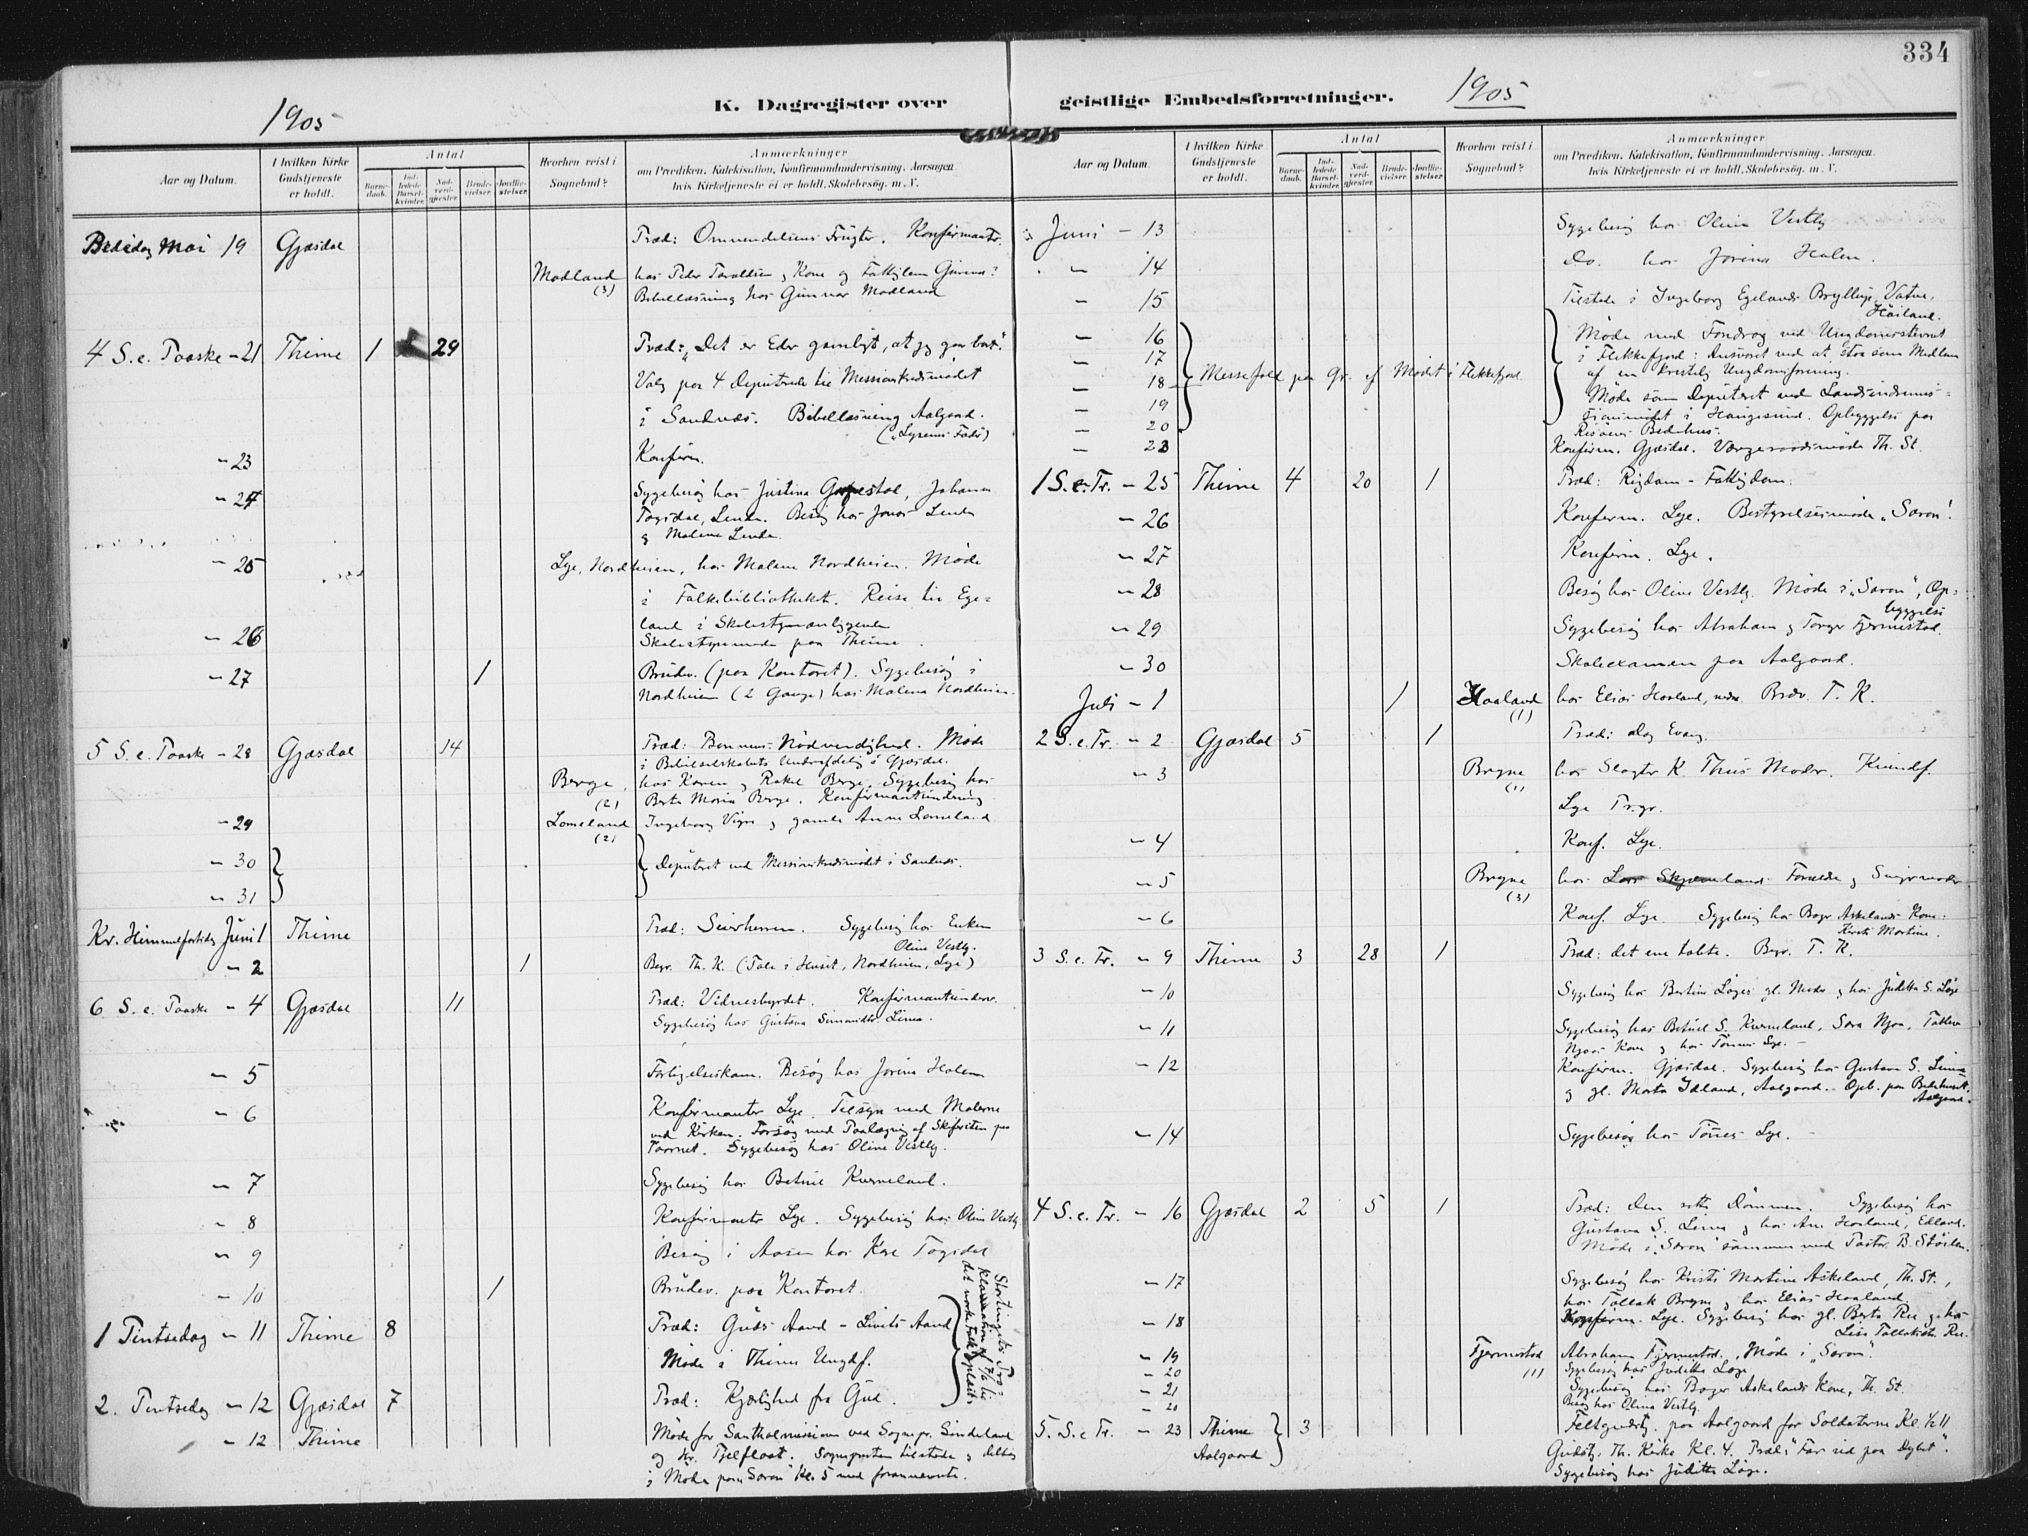 334
K. Dagregister over geistlige Embedsforretninger.
1905
1905
Aar og Datum.
I hvilken Kirke Gudstjeneste er holdt.
Antal
Barnedaab.
Indledede Barselkvinder.
Nadverdgjester.
Brudevielser.
Jordfæstelser.
Hvorhen reist i Sognebud?
Anmærkninger
om Prædiken, Katekisation, Konfirmandundervisning, Aarsagen
hvis Kirketjeneste ei er holdt. Skolebesøg. m. V.
Bededag Mai 19 Gjæsdal Præd: Omvendelsens Frugter. Konfirmanter.
Modland (3) hos Peder Kone og
Bibellæsning hos Gunnar Modland
4 S. e. Paaske - 21 Thime 1 29 Præd: "Det er Eder gavnligt, at jeg gaar bort".
Valg paa 4 Deputerede til Missionskredsmødet
i Sandnæs. Bibellæsning Aalgaard.
- 23 Konfirm.
- 24 Sygebesøg hos Justina
Besøg hos Jonas Lende
& Malene Lende.
- 25 Lye, Nordheien, hos Malene Nordheien. Møde
i Folkebibliotheket. Reise til Ege=
land i Skolestyreanliggender
- 26 Skolestyremøde paa Thime.
- 27 1 Brudev. (paa Kontoret). Sygebesøg i
Nordheien (2 Gange) hos Malena Nordheien.
5 S. e. Paaske - 28 Gjæsdal 14 Præd: Bønnens Nødvendighed. Møde
i Bibelselskabets Underafdelig i Gjæsdal.
Berge (2) hos Karen & Rakel Berge. Sygebesøg hos
Berta Maria Berge. Konfirmantundervisning
- 29 Lomeland (2) Ingeborg & gamle Anne Lomeland
- 30
- 31 Deputeret ved Missionskredsmødet i Sandnæs.
Kr. Himmelfartsdag Juni 1 Thime Præd: Seierherren. Sygebesøg hos Enken
Oline Vestly.
- 2 1 Begr. Th. K. (Tale i Huset, Nordheien, Lye)
6 S. e. Paaske - 4 Gjæsdal 11 Præd: Vidnesbyrdet. Konfirmantunderv.
Sygebesøg hos Gustava Lima.
- 5 Forligelseskom. Besøg hos Jorina Halen
- 6 Konfirmanter Lye. Tilsyn med Malerne
ved Kirken. Forsøg med Paalægning af Skifersten paa
Taarnet. Sygebesøg hos Oline Vestly.
- 7 Sygebesøg hos Betuel Kverneland.
- 8 Konfirmanter Lye. Sygebesøg hos Oline Vestly
- 9 Besøg i Aasen hos
- 10 1 Brudev. paa Kontoret.
1 Pintsedag - 11 Thime 8 Præd: Guds Aand - Livets Aand
Møde i Thime Ungdf.
2. Pintsedag - 12 Gjæsdal 7 Præd: Kjærlighed fra Gud.
Stortingets Pro=
klamation af 7/6 til
det norske Folk oplæst.
- 12 Thime Møde for Santhalmissionen ved Sognepr. Sinderland
og Hr. Fjelfloat. Sognepresten tilstede & deltog
i Møde paa "Saron" Kl. 5 med forannævnte.
Aar og Datum.
I hvilken Kirke Gudstjeneste er holdt.
Antal
Barnedaab.
Indledede Barselkvinder.
Nadverdgjester.
Brudevielser.
Jordfæstelser.
Hvorhen reist i Sognebud?
Anmærkninger
om Prædiken, Katekisation, Konfirmandundervisning, Aarsagen
hvis Kirketjeneste ei er holdt. Skolebesøg. m. V.
Juni - 13 Sygebesøg hos Oline Vestly
- 14 Do. hos Jorina Halen.
- 15 Tilstede i Ingeborg Egelands Bryllup, Vatne,
Høiland.
- 16
- 17
- 18
- 19
- 20
Messefald paa Gr. af Mødet i Flekkefjord.
Møde med Foredrag ved Ungdomsstevnet
i Flekkefjord: Ansvaret ved at staa som Medlem
af en kristelig Ungdomsforening.
Møde som Deputeret ved Landsindremis=
sionsmødet i Haugesund. Opbyggelse paa
Risøens Bedehus.
- 23 Konfirm. Gjæsdal. Værgeraadsmøde Th. St.
1 S. e. Tr. - 25 Thime 4 20 1 Præd: Rigdom - Fattigdom.
- 26 Konfirm. Lye. Bestyrelsesmøde "Saron".
- 27 Konfirm. Lye.
- 28 Besøg hos Oline Vestly. Møde i "Saron", Op=
byggelse
- 29 Sygebesøg hos Abraham & Torger Fjermestad.
- 30 Skoleexamen paa Aalgaard.
Juli - 1 1 Haaland (1) hos Elias Haaland, Brudv. T. K.
2 S. e. Tr. - 2 Gjæsdal 5 1 Præd: Dag. Evang.
- 3 Bryne (1) hos Slagter K. Thus Moder. Kvindf.
Lye
- 4 Konf. Lye.
- 5 Bryne (3) hos Lars Skjæveland Forældre & Svigermoder
- 6 Konf. Lye. Sygebesøg hos Boger Askelands Kone:
Kirsti Martine.
3 S. e. Tr. - 9 Thime 3 28 1 Præd: det ene tabte. Begr. T. K.
- 10 Sygebesøg hos Bertine Løges gl. Moder & hos Juditta S. Løge
- 11 Sygebesøg hos Betuel S. Kverneland, Sara Njaa,
Njaas Kone & hos Tønnes Lye.
- 12 Konfirm. Gjæsdal. Sygebesøg hos Gustava S. Lima
& gl. Marta Idland, Aalgaard. Opb. paa Bedehuset,
Aalgaard.
- 14 Sygebesøg hos Tønes Lye.
4 S. e. Tr. - 16 Gjæsdal 2 5 1 Præd: Den rette Dømmen. Sygebesøg hos
Gustava S. Lima & hos Ane Haaland, Edland.
Møde i "Saron" sammen med Pastor B. Støilen.
- 17 Sygebesøg hos Kristi Martine Askeland, Th. St.,
hos Tollak Bryne & hos Elias Haaland.
- 18 Konfirm. Lye. Sygebesøg hos gl. Berta Ree & hos
Lise Tollaksdtr. Ree.
- 19 Fjermestad (1) Abraham Fjermestad. Møde i "Saron".
- 20 Sygebesøg hos Juditta Løge
- 21 Sygebesøg hos Boger Askelands Kone, Th. St.
Besøg hos Oline Vestly.
5. S. e. Tr. - 23 Thime
Aalgaard 3 Feltgudstj. paa Aalgaard for Soldaterne Kl. ½ 11
Gudstj. Th. Kirke Kl. 4. Præd: "Far ud paa Dybet".
Sygebesøg hos Juditta Løge.